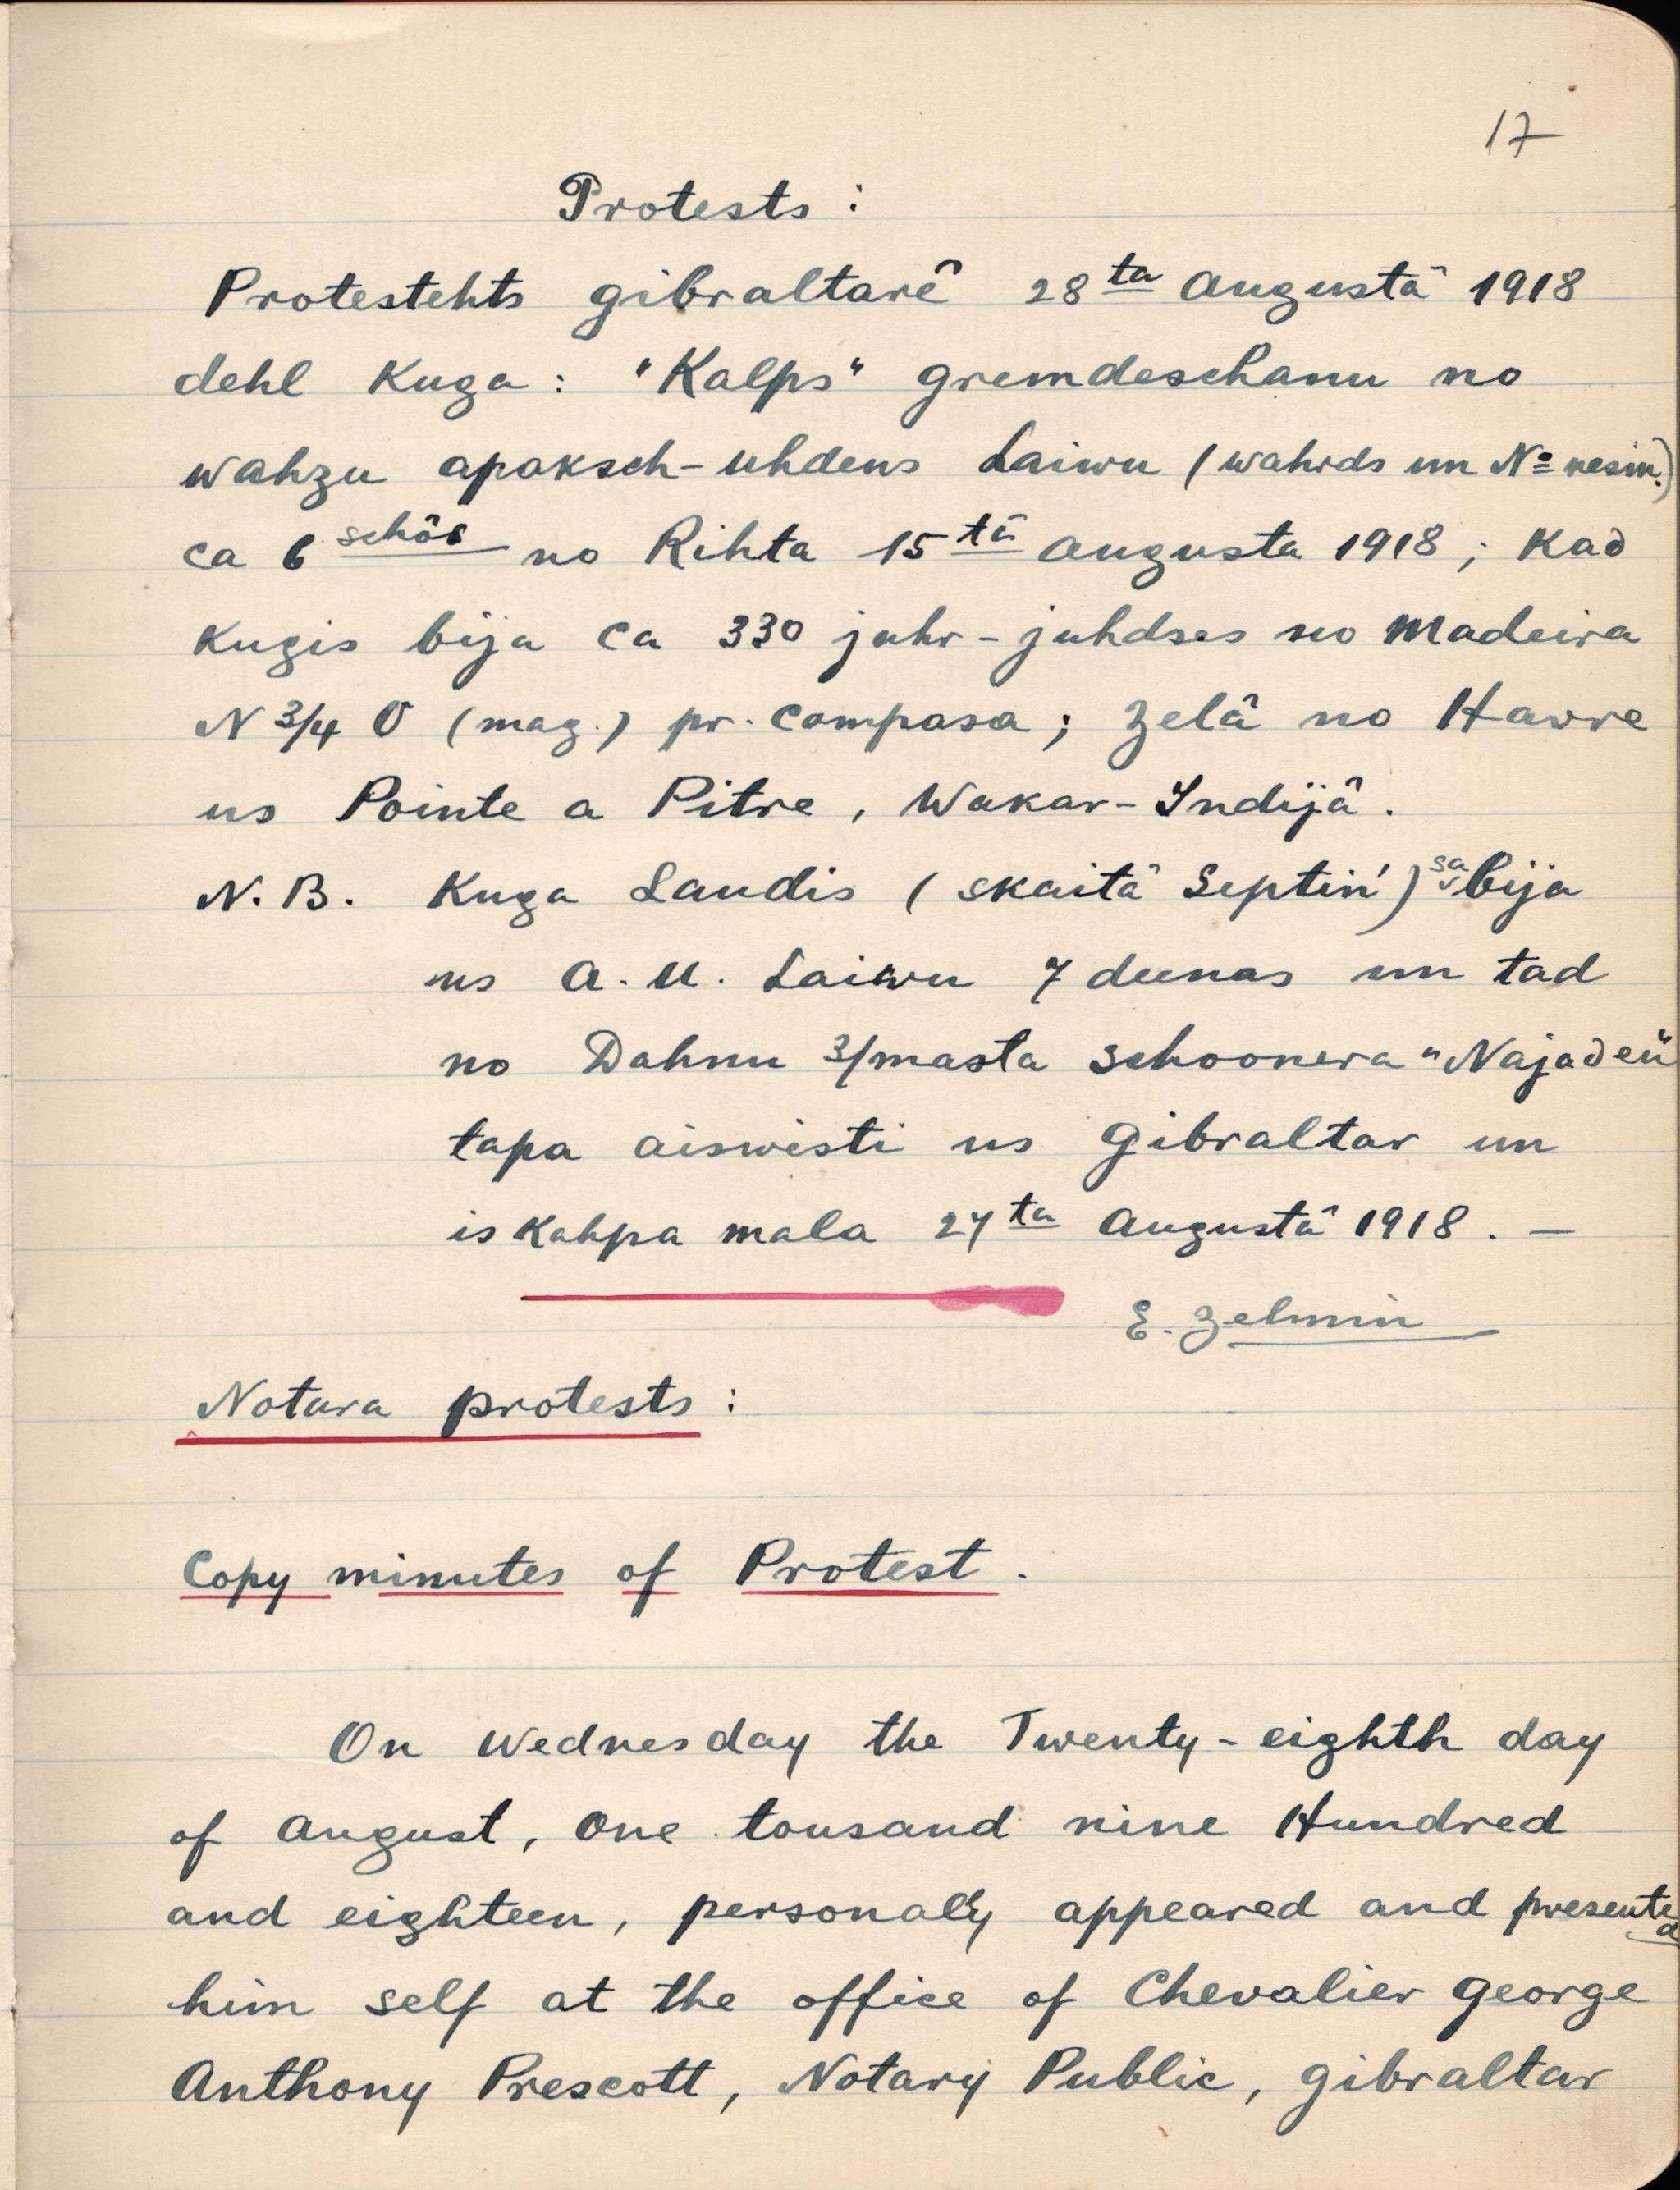 17
Protests :
Protestehts gibraltarê 28ta Augustâ 1918
dehl Kuga : "Kalps" gremdeschanu no
wahzu apaksch-uhdens Laiwu (wahrds un No nesin.)
ca 6 schôs no Rihta 15tâ Augusta 1918 ; Kad
Kugis bija ca 330 juhr-juhdses no Madeira
N 3/4 O (mag.) pr. Compasa ; zelâ no Havre
us Pointe a Pitre , Wakar-Indijâ .
N.B. Kuga Laudis ( skaitâ Septin') sa bija
us A. U. Laiwu 7 deenas un tad
no Dahnu 3/masta schoonera "Najaden"
tapa aiswesti us Gibraltar un
iskahpa mala 27ta Augustâ 1918 . —
E. Zelmin
Notara protests :
Copy minutes of Protest .
On Wednesday the Twenty-eighth day
of August , One tousand nine Hundred
and eighteen , personally appeared and presented
him self at the office of Chevalier George
Anthony Prescott , Notary Public , Gibraltar